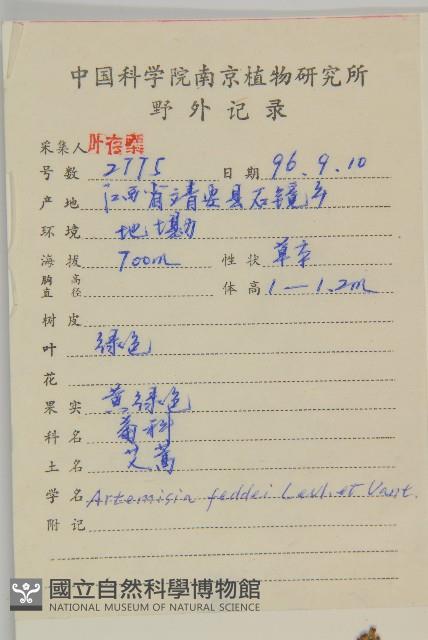 中国科学院南京植物研究所
野外记录
采集人 叶存粟
号数 2775 日期 96.9.10
产地 江西省靖安县石镜乡
环境 地塝
海拔 700m 性状 草本
胸高直径 体高 1—1.2m
树皮
叶 绿色
花
果实 黄绿色
科名 菊科
土名 艾蒿
学名 Artemisia feddei Levl. et Vant.
附记
國立自然科學博物館
NATIONAL MUSEUM OF NATURAL SCIENCE